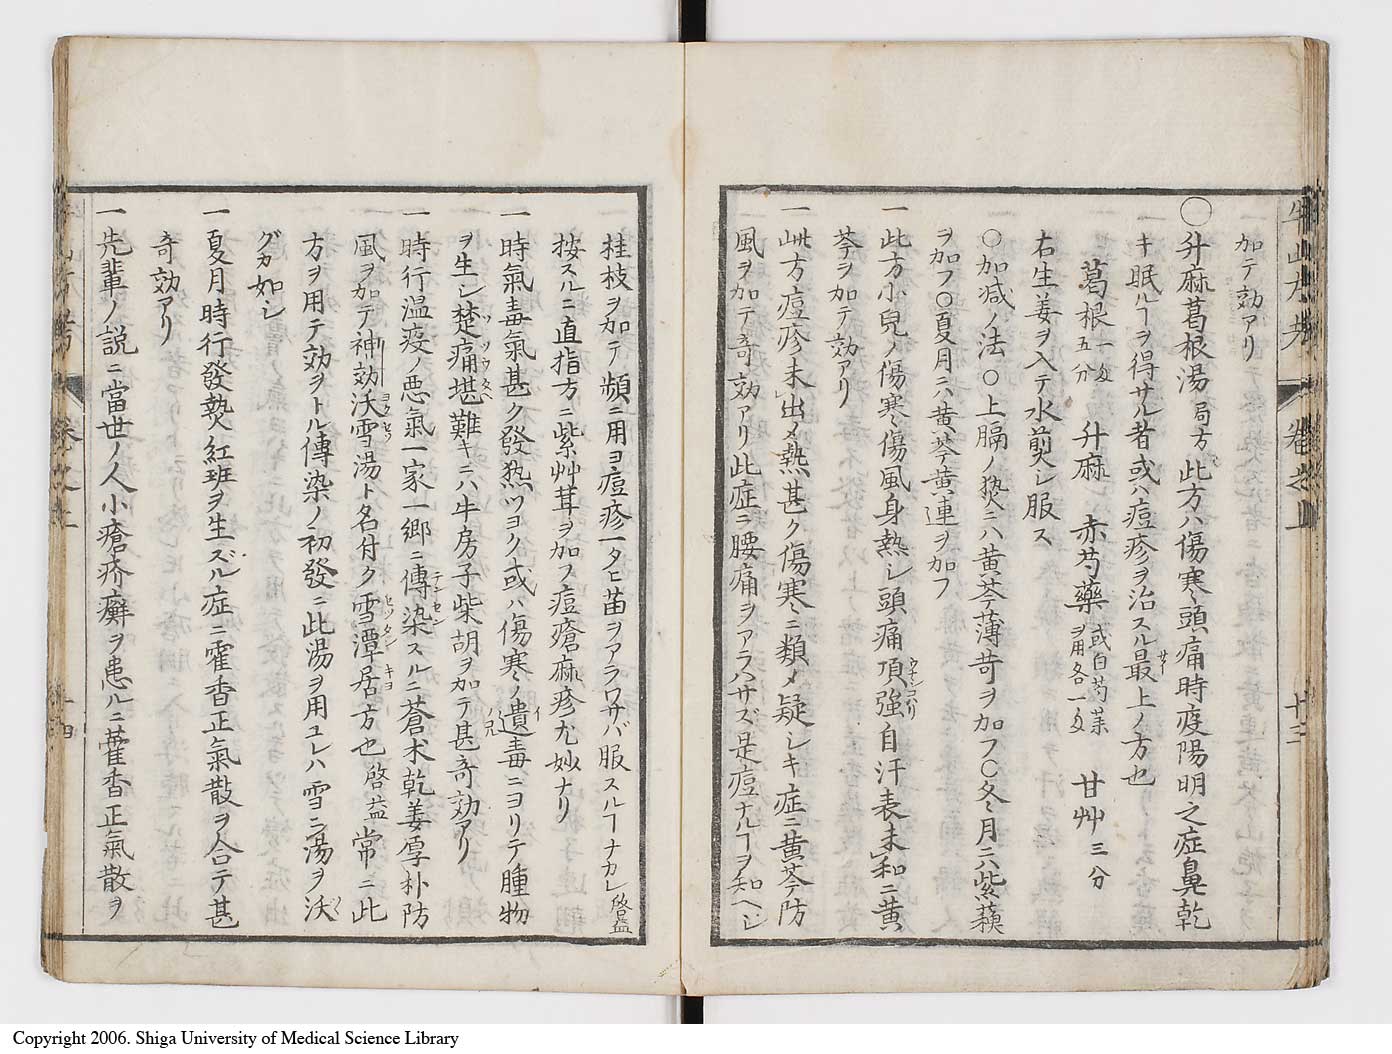 加テ効アリ
〇升麻葛根湯 局方 此方ハ傷寒頭痛時疫陽明之症鼻乾
キ眠ルヿヲ得サル者或ハ痘疹ヲ治スル最上ノ方也
葛根一匁五分 升麻 赤芍藥 或白芍薬ヲ用各一匁 甘艸三分
右生姜ヲ入テ水煎シ服ス
〇加減ノ法〇上膈ノ熱ニハ黄芩薄苛ヲ加フ〇冬月ニハ紫蘓
ヲ加フ〇夏月ニハ黄芩黄連ヲ加フ
一此方小兒ノ傷寒傷風身熱シ頭痛項強自汗表未和ニ黄
芩ヲ加テ効アリ
一此方痘疹未出メ熱甚ク傷寒ニ類メ疑シキ症ニ黄芩防
風ヲ加テ奇効アリ此症ニ腰痛ヲアラハサズ是痘ナルヿヲ知ヘシ
卷之上
十三
桂枝ヲ加テ頻ニ用ヨ痘疹一タヒ苗ヲアラワサバ服スルヿナカレ啓益
按スルニ直指方ニ紫艸茸ヲ加フ痘瘡麻疹尤妙ナリ
一時氣毒氣甚ク發熱ツヨク或ハ傷寒ノ遺毒ニヨリテ腫物
ヲ生シ楚痛堪難キニハ牛房子柴胡ヲ加テ甚奇効アリ
一時行温疫ノ悪氣一家一郷ニ傳染スルニ蒼朮乾姜厚朴防
風ヲ加テ神効沃雪湯ト名付ク雪潭居方也啓益常ニ此
方ヲ用テ効ヲトル傳染ノ初發ニ此湯ヲ用ユレハ雪ニ湯ヲ沃
グカ如シ
一夏月時行發熱紅班ヲ生ズル症ニ霍香正氣散ヲ合テ甚
奇効アリ
一先輩ノ説ニ當世ノ人小瘡疥癬ヲ患ルニ藿香正氣散ヲ
十四
Copyright 2006. Shiga University of Medical Science Library